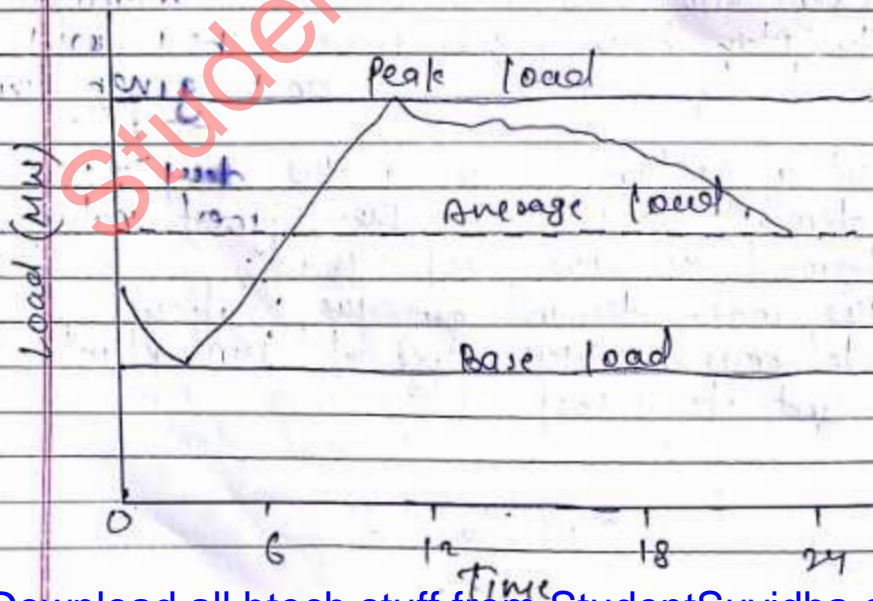 Peak load
Average load
Base load
Load (MW)
0 6 12 18 24
Time
Studen
Download all btech stuff from StudentSuvidha.c